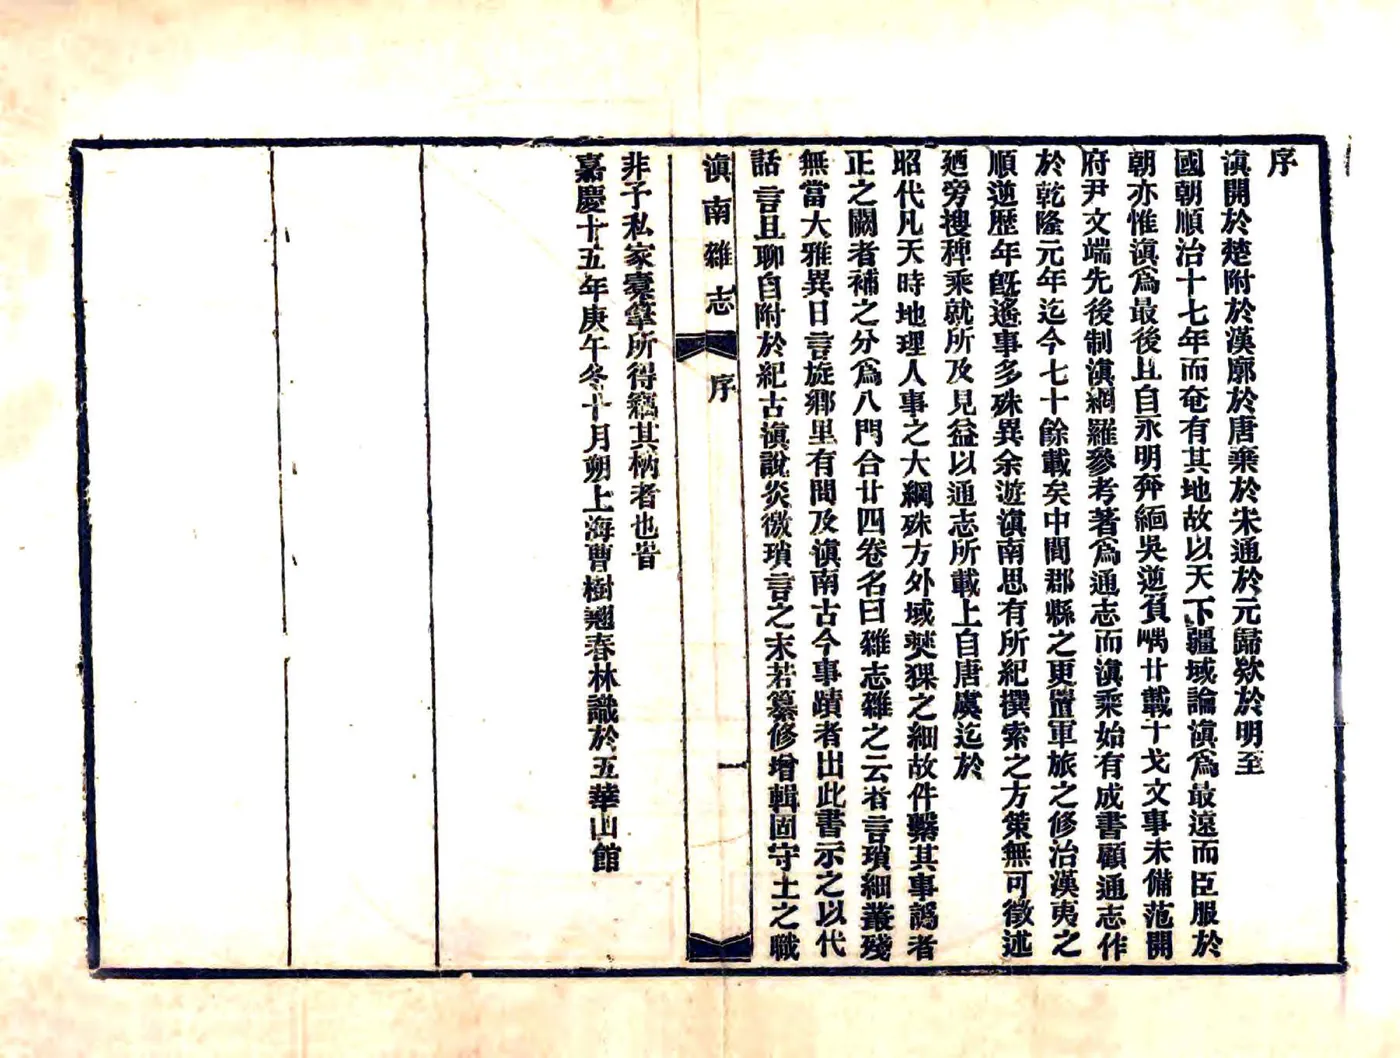 序
滇開於楚附於漢廓於唐棄於宋通於元歸欵於明至
國朝順治十七年而奄有其地故以天下疆域論滇爲最遠而臣服於
朝亦惟滇爲最後且自永明奔緬吳逆負嵎廿載干戈文事未備范開
府尹文端先後制滇網羅參考著爲通志而滇乘始有成書顧通志作
於乾隆元年迄今七十餘載矣中間郡縣之更置軍旅之修治漢夷之
順逆歷年旣遙事多殊異余遊滇南思有所紀撰索之方策無可徵述
廼旁搜稗乘就所及見益以通志所載上自唐虞迄於
昭代凡天時地理人事之大綱殊方外域爨猓之細故件繫其事譌者
正之闕者補之分爲八門合廿四卷名曰雜志雜之云者言瑣細叢殘
無當大雅異日言旋鄉里有間及滇南古今事蹟者出此書示之以代
話言且聊自附於紀古滇說炎徼瑣言之末若纂修增輯固守土之職
滇南雜志
序
一
非予私家橐筆所得竊其柄者也旹
嘉慶十五年庚午冬十月朔上海曹樹翹春林識於五華山館